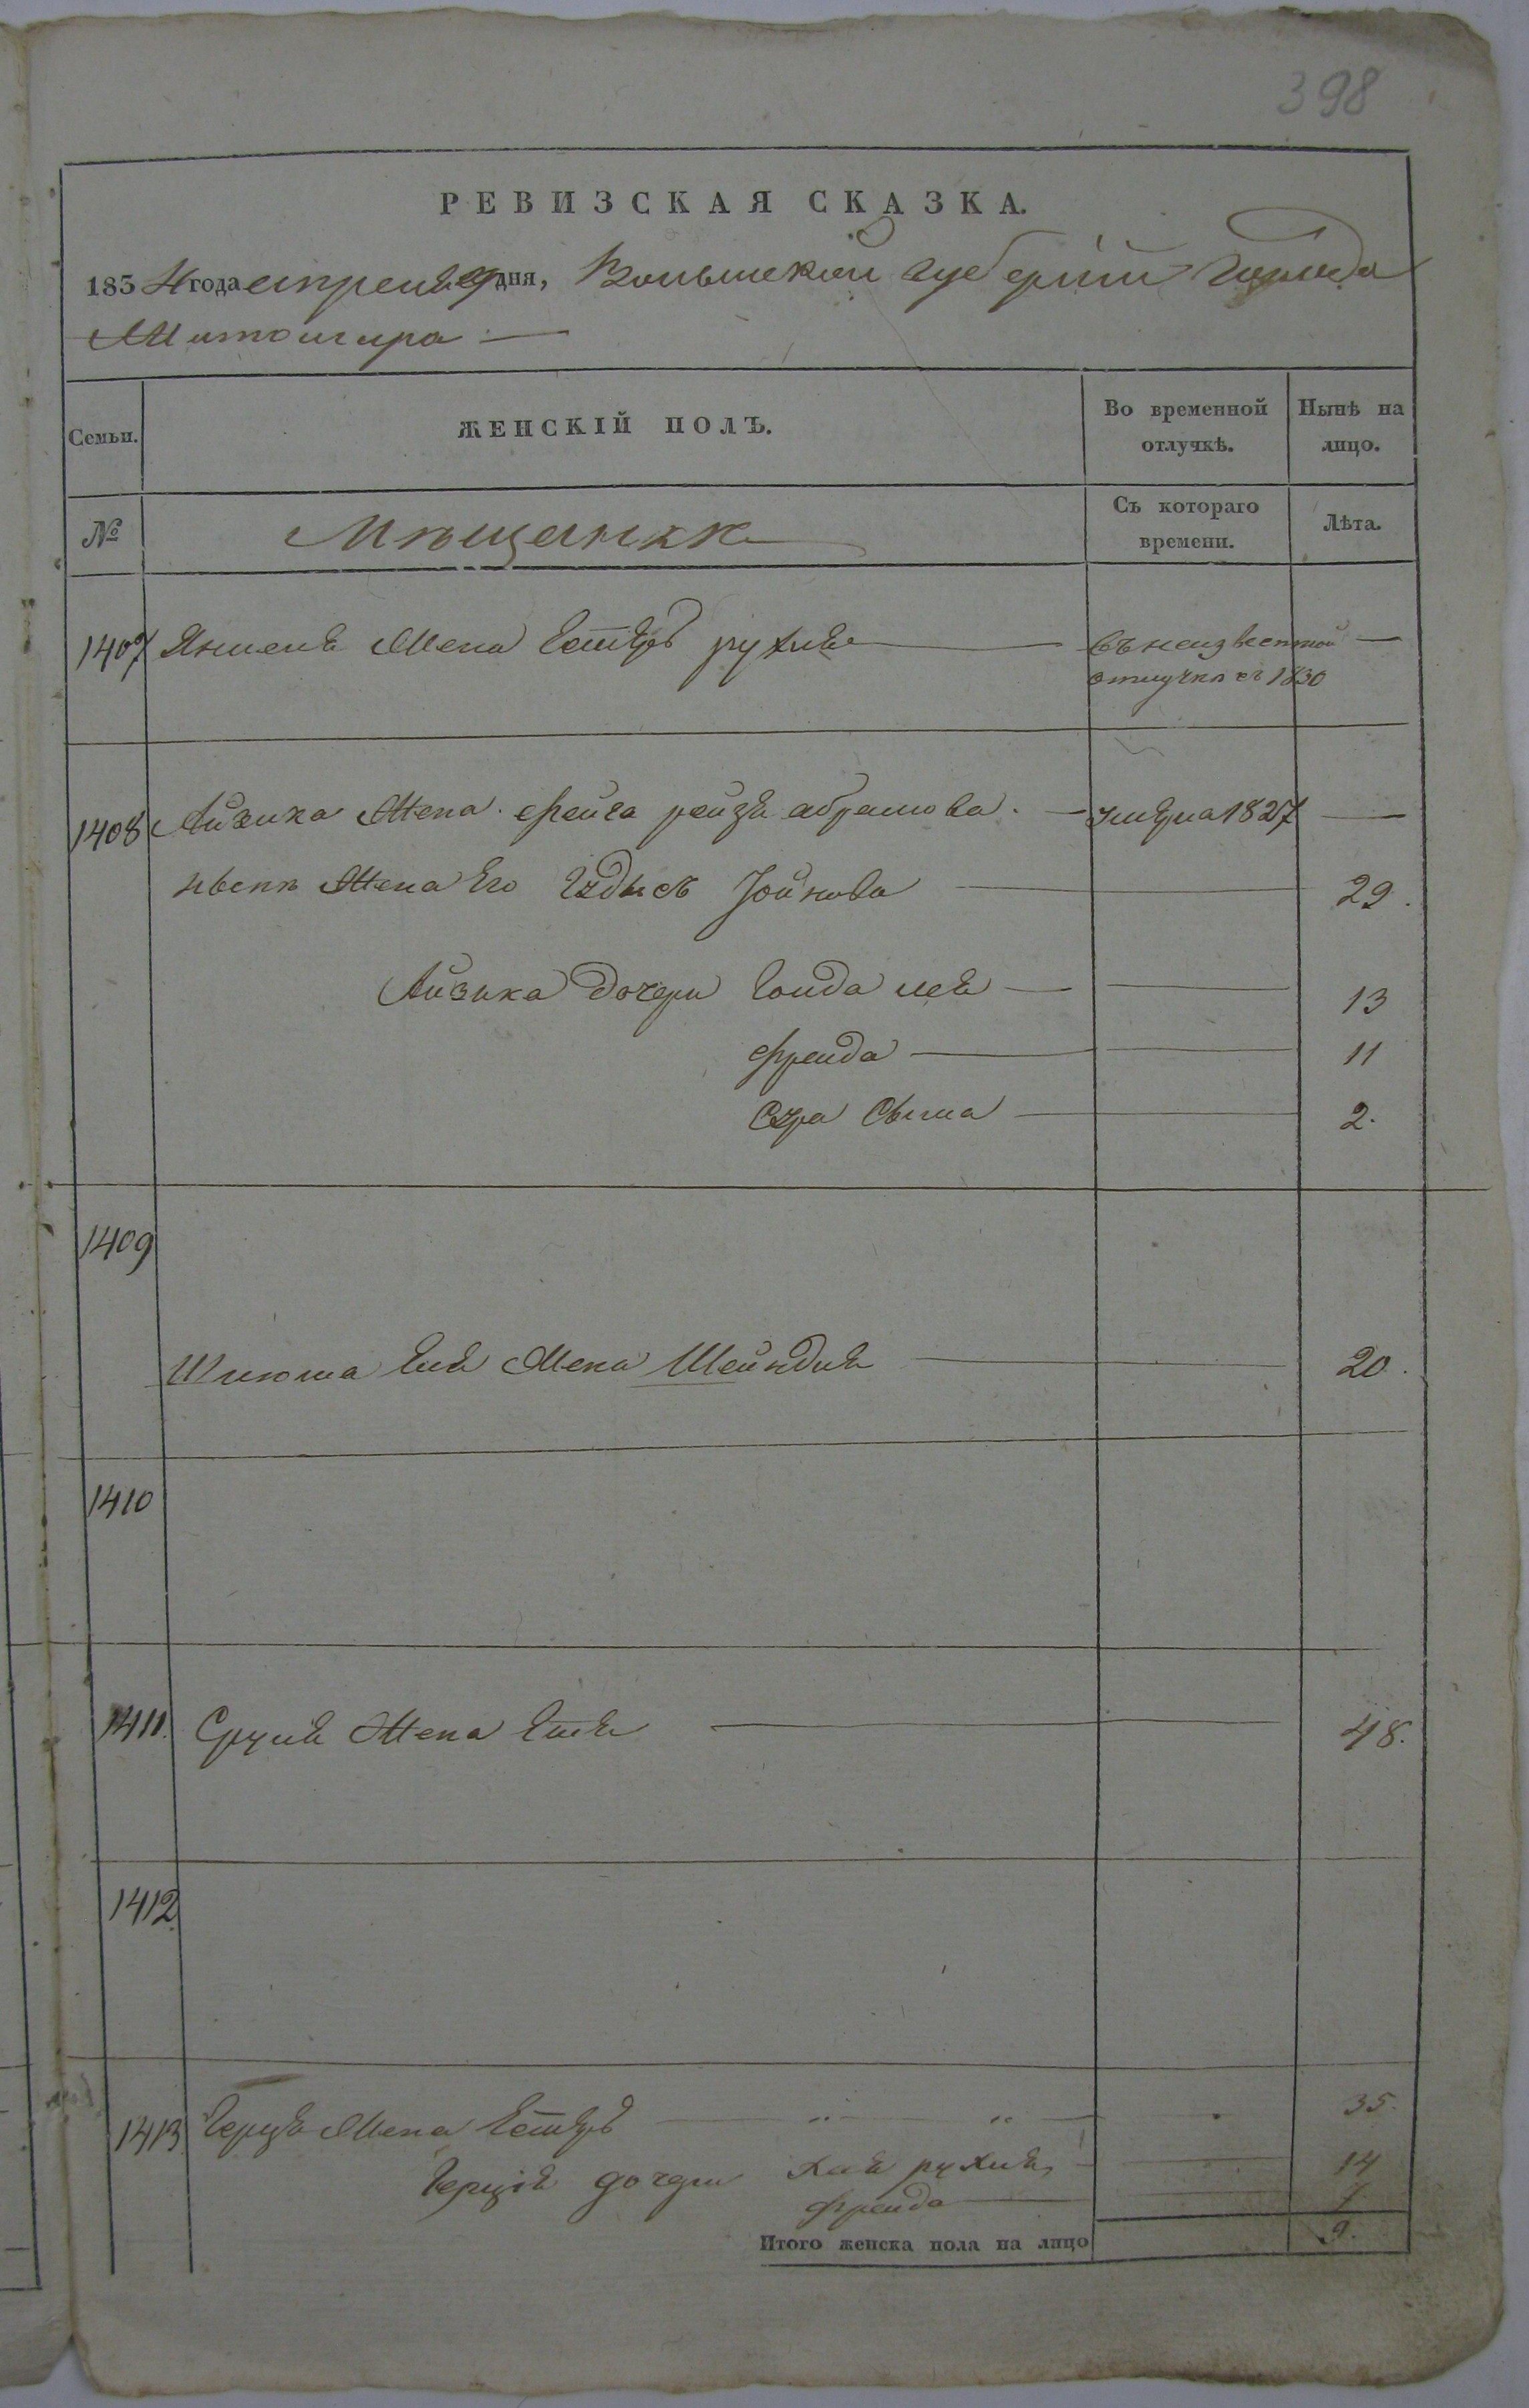 398
РЕВИЗСКАЯ СКАЗКА.
1834 года апреля дня, Волынской губернiи города
Житомира
Семьи. ЖЕНСКІЙ ПОЛЪ. Во временной отлучкѣ. Нынѣ на лицо.
№ Мѣщанки Съ котораго времени. Лѣта.
1407 Жена Естеръ рухля въ неизвестной
отлучкѣ съ 1830
1408 Айзика Жена фейга рейзя абрамова умерла 1827
Жена Его Іойнова 29.
Айзика дочери Голда лея 13
фрейда 11
Сура 2.
1409
Жена Шейндля 20.
1410
1411. Сруля Жена Етя 48.
1412.
1413. Герша Жена Естеръ " " 35.
дочери Хая рухля 14
фрейда 7
Итого женска пола на лицо 9.